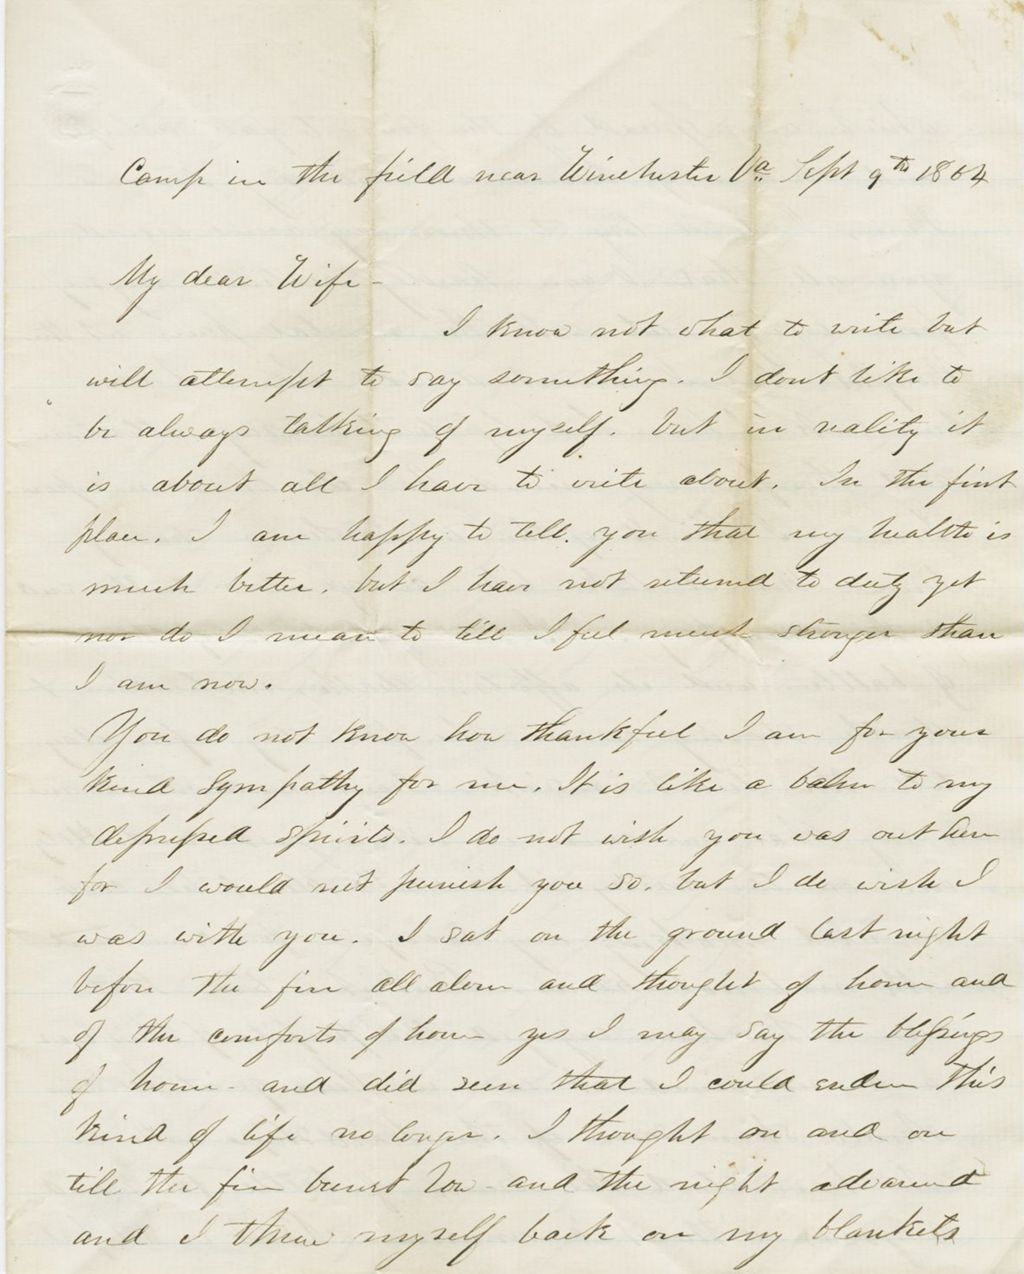 Camp in the field near Winchester Va. Sept 9th 1864
My dear Wife -
I know not what to write but
will attempt to say something. I dont like to
be always talking of myself. but in reality it
is about all I have to write about. In the first
place. I am happy to tell. you that my health is
much better. but I have not returned to duty yet
nor do I mean to till I feel much stronger than
I am now.
You do not know how thankful I am for your
kind sympathy for me. It is like a balm to my
depressed spirits. I do not wish you was out here
for I would not punish you so. but I do wish I
was with you. I sat on the ground last night
before the fire all alone and thought of home and
of the comforts of home yes I may say the blessings
of home - and did seem that I could endure this
kind of life no longer. I thought on and on
till the fire burnt low - and the night advanced
and I threw myself back on my blankets